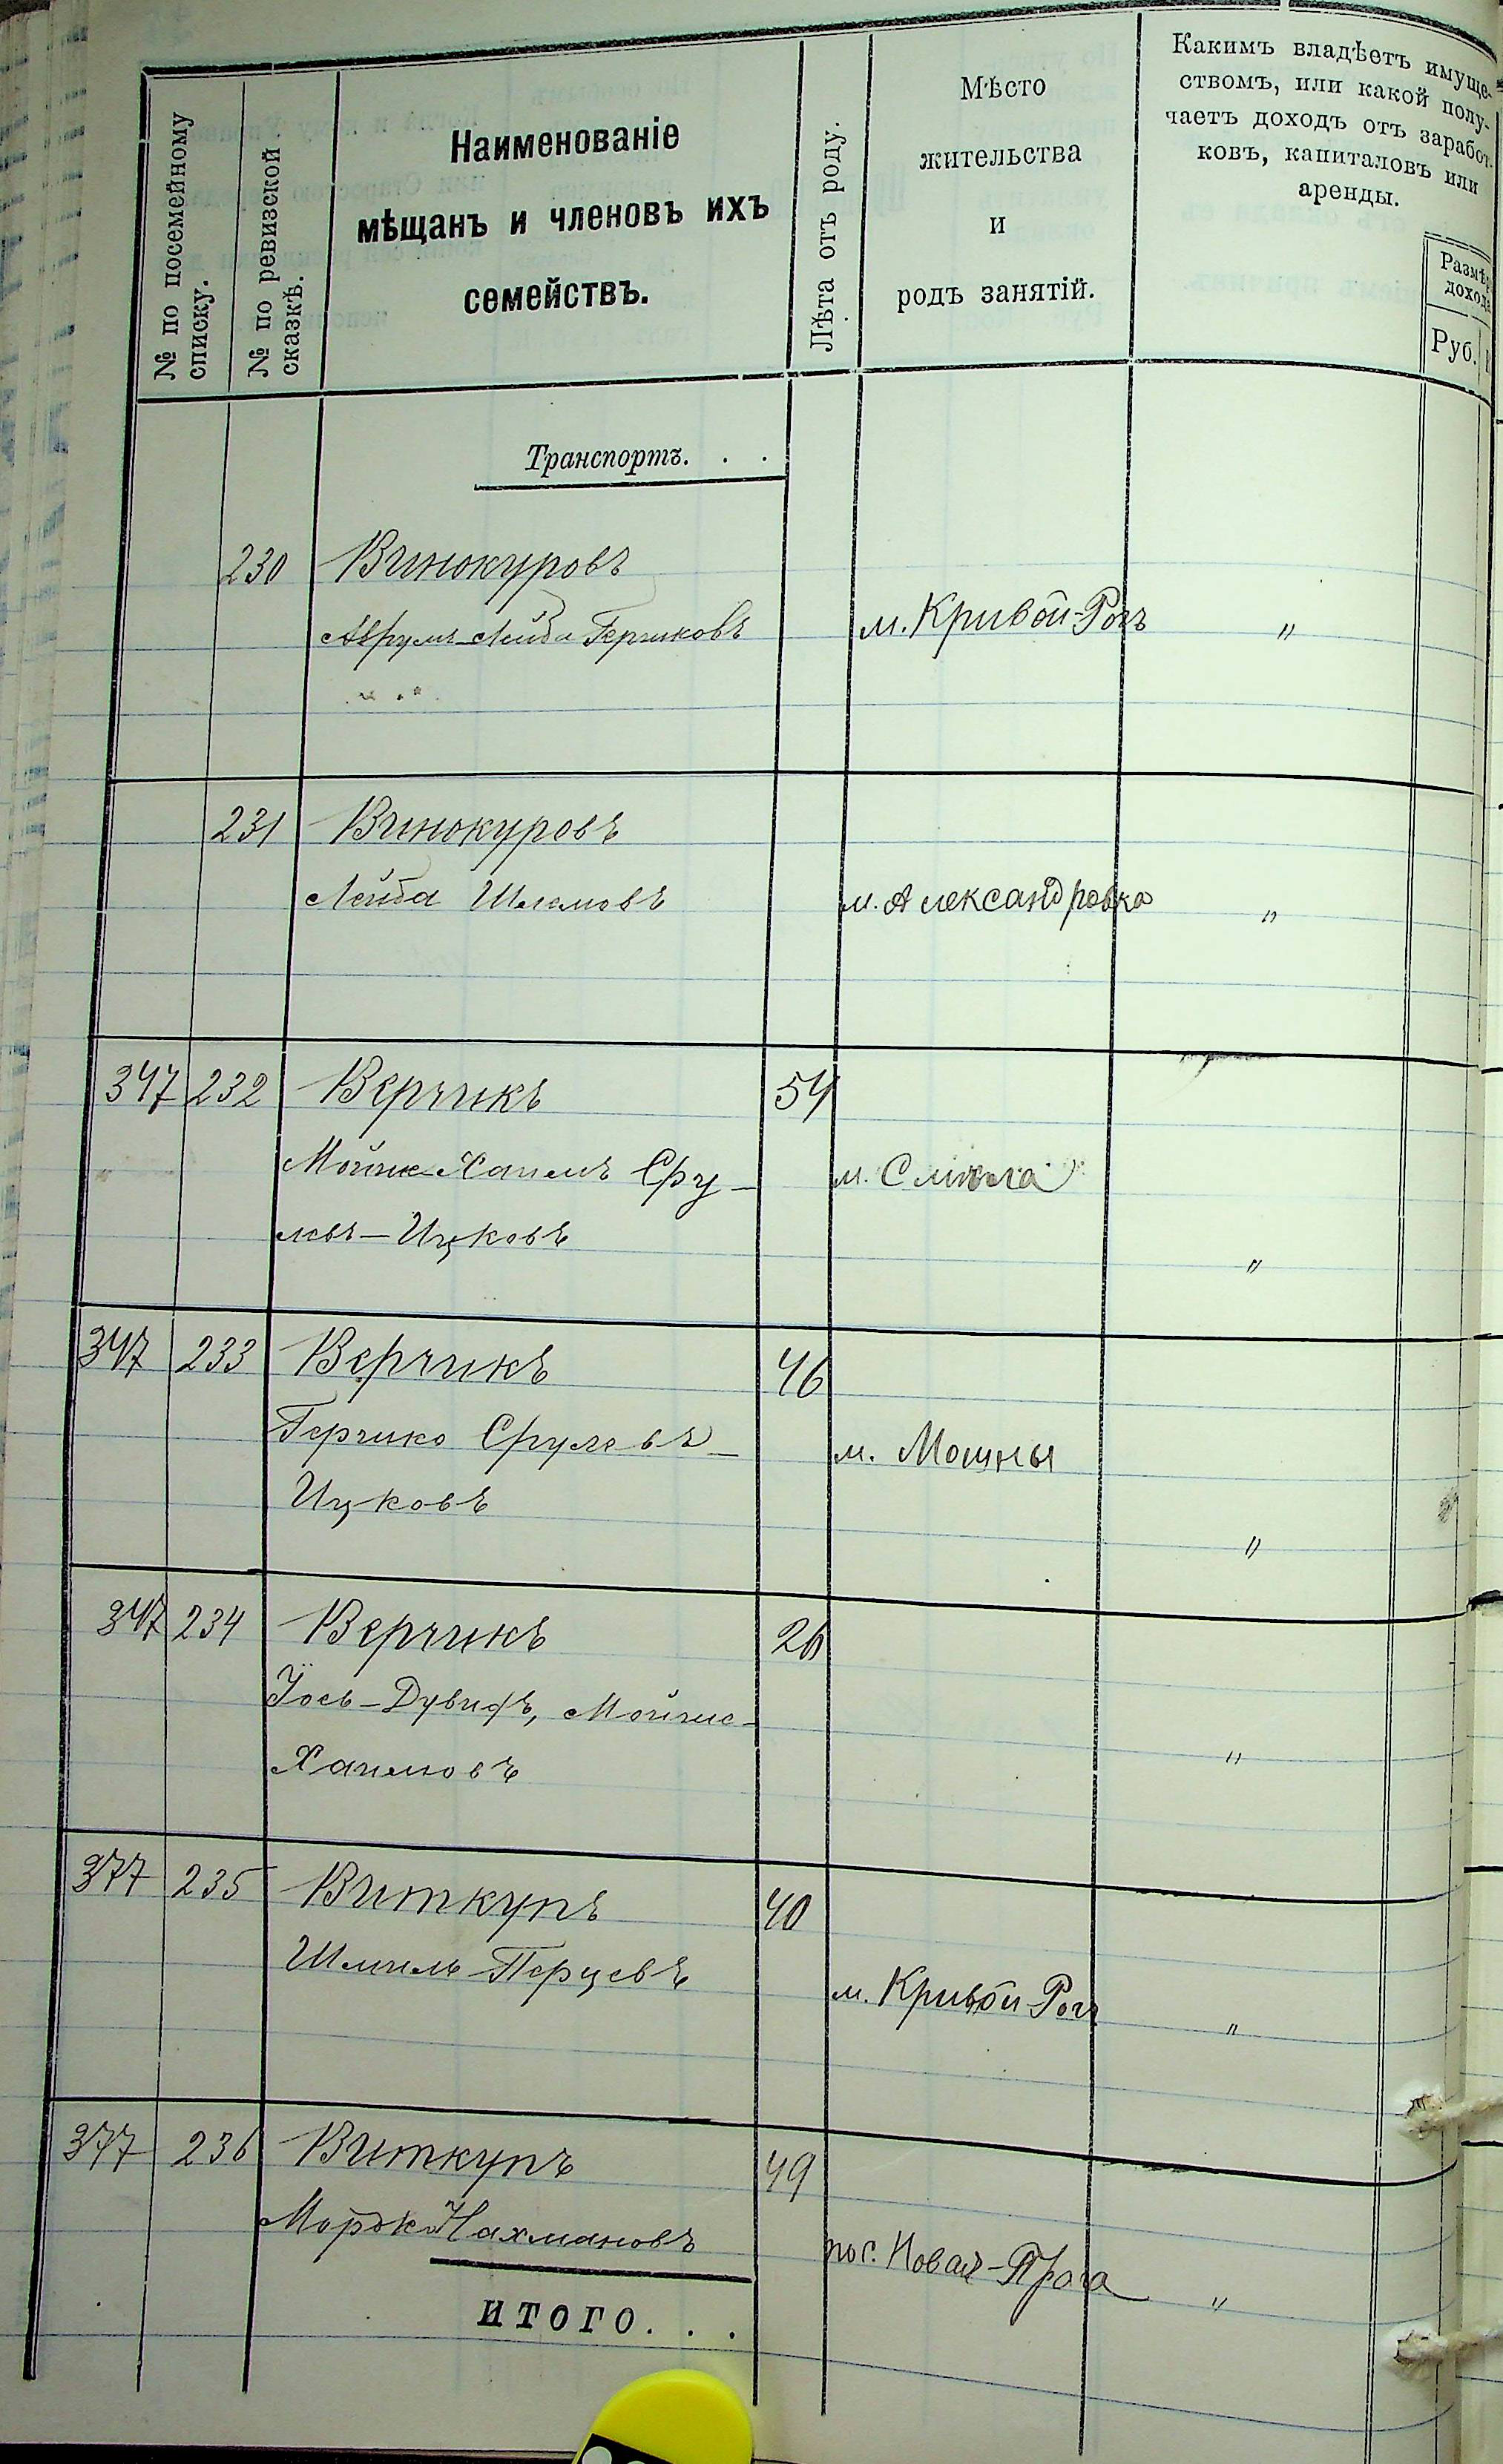 № по посемейному
списку.
№ по ревизской
сказкѣ.
Наименованіе
мѣщанъ и членовъ ихъ
семействъ.
Лѣта отъ роду.
Мѣсто
жительства
и
родъ занятій.
Какимъ владѣетъ имуще-
ствомъ, или какой полу-
чаетъ доходъ отъ заработ-
ковъ, капиталовъ или
аренды.
Размѣръ
дохода
Руб.
Транспортъ. . .
230 Винокуровъ
Аврумъ-Лейба Гершковъ м. Кривой-Рогъ "
231 Винокуровъ
Лейба Шлемовъ м. Александровка "
347 232 Верчикъ 54
Мойше-Хаимъ Сру- м. Смѣла
левъ-Ицковъ "
347 233 Верчикъ 46
Гершко Срулевъ- м. Мошны
Ицковъ "
347 234 Верчикъ 26
Іось-Дувидъ, Мойше-
Хаимовъ "
377 235 Виткупъ 40
Шмиль Перцевъ м. Кривой-Рогъ "
377 236 Виткупъ 49
Мордко Нахмановъ пос. Новая-Прага "
ИТОГО. . .